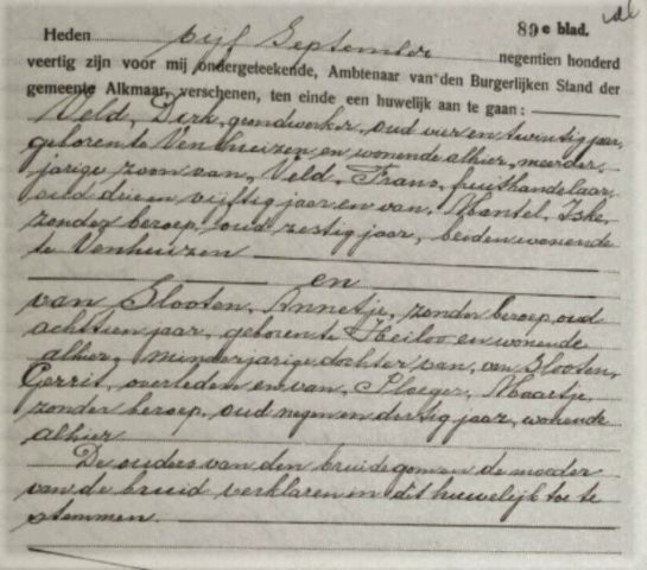 89e blad.
Heden vijf September negentien honderd
veertig zijn voor mij ondergeteekende, Ambtenaar van den Burgerlijken Stand der
gemeente Alkmaar, verschenen, ten einde een huwelijk aan te gaan:
Veld, Dirk, grondwerker, oud vier en twintig jaar,
geboren te Venhuizen en wonende alhier, meerder-
jarige zoon van, Veld, Frans, fruithandelaar,
oud drie en vijftig jaar en van, Mantel, Iske,
zonder beroep, oud zestig jaar, beiden wonende
te Venhuizen
en
van Slooten, Annetje, zonder beroep, oud
achttien jaar, geboren te Heiloo en wonende
alhier, minderjarige dochter van, van Slooten,
Gerrit, overleden en van, Ploeger, Maartje,
zonder beroep, oud negen en dertig jaar, wonende
alhier
De ouders van den bruidegom en de moeder
van de bruid verklaren in dit huwelijk toe te
stemmen.